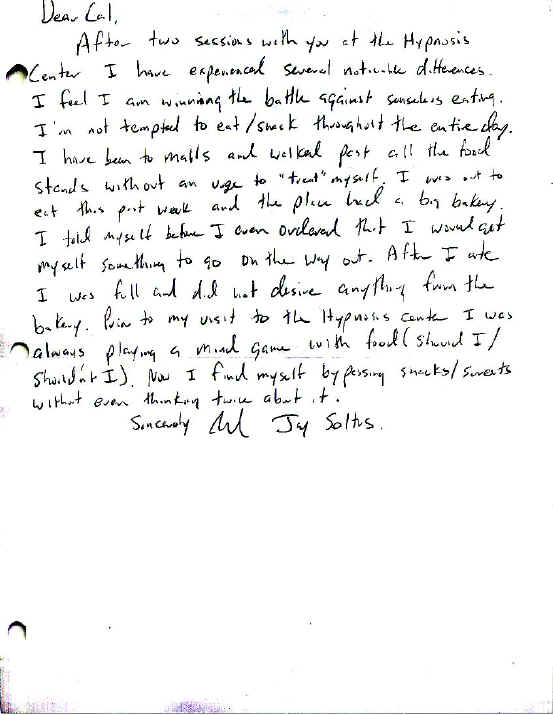 Dear Cal,
After two sessions with you at the Hypnosis
Center I have experienced several noticable differences.
I feel I am winning the battle against senseless eating.
I'm not tempted to eat/snack throughout the entire day.
I have been to malls and walked past all the food
stands without an urge to "treat" myself. I was out to
eat this past week and the place had a big bakery.
I told myself before I even ordered that I would get
myself something to go on the way out. After I ate
I was full and did not desire anything from the
bakery. Prior to my visit to the Hypnosis center I was
always playing a mind game with food (should I/
shouldn't I). Now I find myself bypassing snacks/sweets
without even thinking twice about it.
Sincerely Jay Soltus.